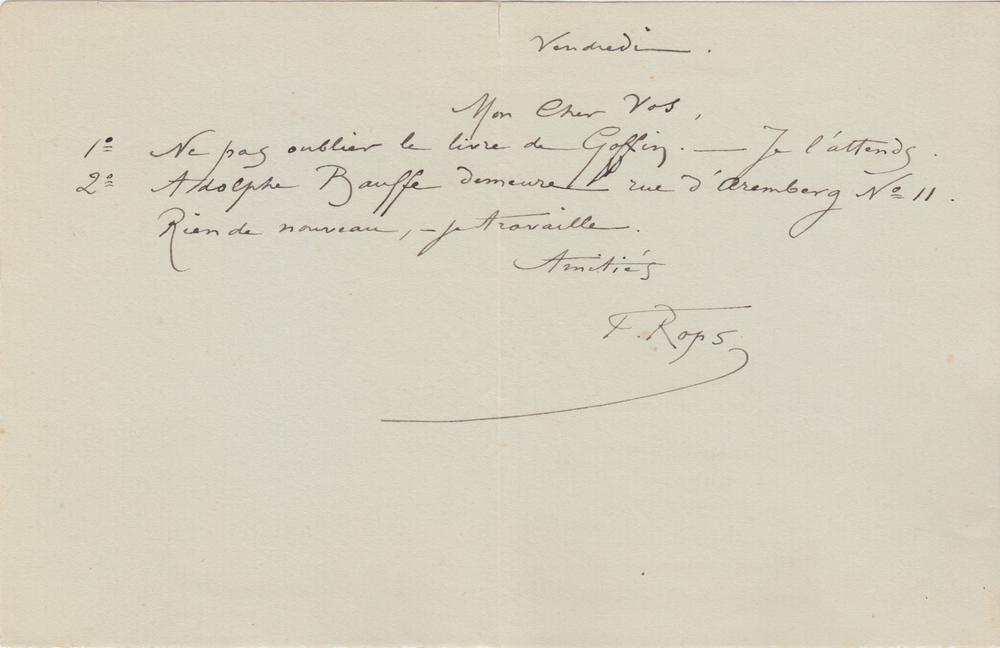 Vendredi.
Mon Cher Vos,
1º Ne pas oublier le livre de Goffin. — Je l'attends.
2º Adolphe Bauffe demeure rue d'Aremberg Nº 11.
Rien de nouveau, – je travaille.
Amitiés
F. Rops